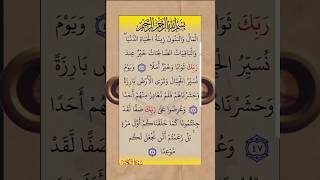 بِسْمِ اللَّهِ الرَّحْمَٰنِ الرَّحِيمِ
الْمَالُ وَالْبَنُونَ زِينَةُ الْحَيَاةِ الدُّنْيَا ۖ
وَالْبَاقِيَاتُ الصَّالِحَاتُ خَيْرٌ عِندَ
رَبِّكَ ثَوَابًا وَخَيْرٌ أَمَلًا ٤٦ وَيَوْمَ
نُسَيِّرُ الْجِبَالَ وَتَرَى الْأَرْضَ بَارِزَةً
وَحَشَرْنَاهُمْ فَلَمْ نُغَادِرْ مِنْهُمْ أَحَدًا
٤٧ وَعُرِضُوا عَلَىٰ رَبِّكَ صَفًّا لَّقَدْ
جِئْتُمُونَا كَمَا خَلَقْنَاكُمْ أَوَّلَ مَرَّةٍ
ۚ بَلْ زَعَمْتُمْ أَلَّن نَّجْعَلَ لَكُم
مَّوْعِدًا ٤٨
سورة الكهف